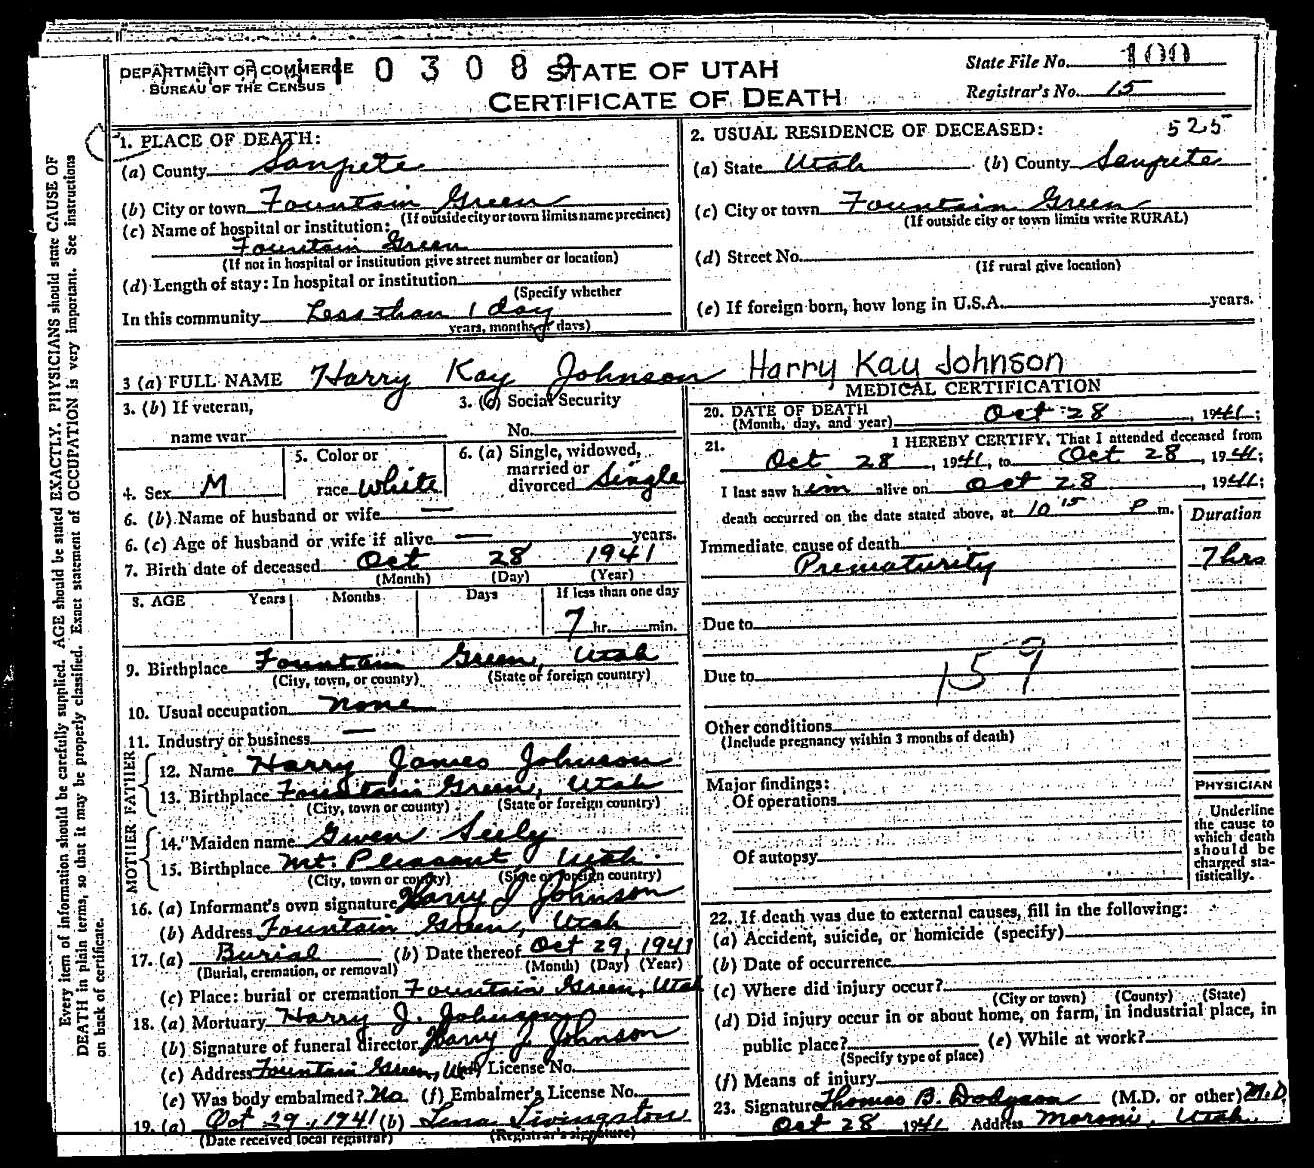 DEPARTMENT OF COMMERCE
BUREAU OF THE CENSUS
STATE OF UTAH
CERTIFICATE OF DEATH
State File No. 100
Registrar's No. 15
1. PLACE OF DEATH:
(a) County Sanpete
(b) City or town Fountain Green
(If outside city or town limits name precinct)
(c) Name of hospital or institution:
Fountain Green
(If not in hospital or institution give street number or location)
(d) Length of stay: In hospital or institution
(Specify whether
In this community Less than 1 day
years, months, or days)
2. USUAL RESIDENCE OF DECEASED: 525
(a) State Utah (b) County Sanpete
(c) City or town Fountain Green
(If outside city or town limits write RURAL)
(d) Street No.
(If rural give location)
(e) If foreign born, how long in U.S.A. years.
3 (a) FULL NAME Harry Kay Johnson Harry Kay Johnson
3. (b) If veteran,
name war
3. (c) Social Security
No.
4. Sex M
5. Color or
race white
6. (a) Single, widowed,
married or
divorced Single
6. (b) Name of husband or wife —
6. (c) Age of husband or wife if alive — years.
7. Birth date of deceased Oct 28 1941
(Month) (Day) (Year)
8. AGE Years Months Days If less than one day
7 hr. min.
9. Birthplace Fountain Green, Utah
(City, town, or county) (State or foreign country)
10. Usual occupation None
11. Industry or business —
FATHER
12. Name Harry James Johnson
13. Birthplace Fountain Green, Utah
(City, town or county) (State or foreign country)
MOTHER
14. Maiden name Gwen Seely
15. Birthplace Mt. Pleasant Utah
(City, town or county) (State or foreign country)
16. (a) Informant's own signature Harry J Johnson
(b) Address Fountain Green, Utah
17. (a) Burial (b) Date thereof Oct 29, 1941
(Burial, cremation, or removal) (Month) (Day) (Year)
(c) Place: burial or cremation Fountain Green, Utah
18. (a) Mortuary Harry J. Johnson
(b) Signature of funeral director Harry J Johnson
(c) Address Fountain Green, Utah License No.
(e) Was body embalmed? No (f) Embalmer's License No.
19. (a) Oct 29, 1941 (b) Lena Livingston
(Date received local registrar) (Registrar's signature)
MEDICAL CERTIFICATION
20. DATE OF DEATH Oct 28, 1941;
(Month, day, and year)
21. I HEREBY CERTIFY, That I attended deceased from
Oct 28, 1941, to Oct 28, 1941;
I last saw him alive on Oct 28, 1941;
death occurred on the date stated above, at 10 15 P m.
Duration
Immediate cause of death
Prematurity 7 hrs
Due to
Due to 159
Other conditions
(Include pregnancy within 3 months of death)
Major findings:
Of operations
Of autopsy
PHYSICIAN
Underline
the cause to
which death
should be
charged sta-
tistically.
22. If death was due to external causes, fill in the following:
(a) Accident, suicide, or homicide (specify)
(b) Date of occurrence
(c) Where did injury occur?
(City or town) (County) (State)
(d) Did injury occur in or about home, on farm, in industrial place, in
public place? (e) While at work?
(Specify type of place)
(f) Means of injury
23. Signature Thomas B. Dodgson (M.D. or other) M.D.
Oct 28 1941 Address Moroni, Utah
Every item of information should be carefully supplied. AGE should be stated EXACTLY. PHYSICIANS should state CAUSE OF
DEATH in plain terms, so that it may be properly classified. Exact statement of OCCUPATION is very important. See instructions
on back of certificate.